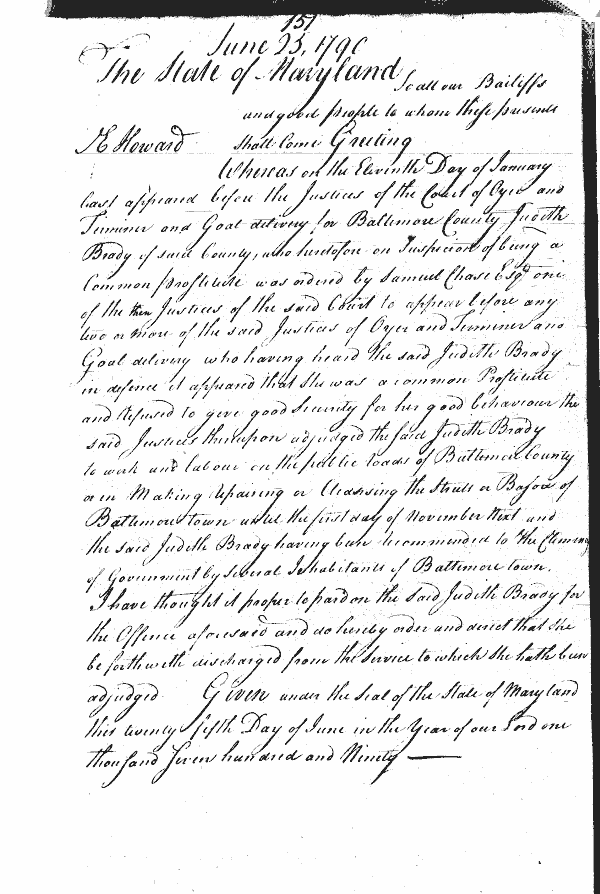 151
June 25, 1790
The State of Maryland
To all our Bailiffs
and good people to whom these presents
JE Howard shall Come Greeting
Whereas on the Eleventh Day of January
last appeared before the Justices of the Court of Oyer and
Terminer and Goal delivery for Baltimore County Judith
Brady of said County, who heretofore on Suspicion of being a
Common prostitute was ordered by Samuel Chase Esqr one
of the then Justices of the said Court to appear before any
two or more of the said Justices of Oyer and Terminer and
Goal delivery who having heard the said Judith Brady
in defence it appeared that she was a common Prostitute
and Refused to give good Security for her good behaviour the
said Justices thereupon adjudged the said Judith Brady
to work and labour on the public roads of Baltimore County
or in Making repairing or Cleansing the Streets or Bason of
Baltimore town until the first day of November Next and
the said Judith Brady having been recommended to the Clemency
of Government by several Inhabitants of Baltimore town.
I have thought it proper to pardon the said Judith Brady for
the Offence aforesaid and do hereby order and direct that she
be forthwith discharged from the service to which she hath been
adjudged Given under the Seal of the State of Maryland
this twenty fifth Day of June in the Year of our Lord one
thousand Seven hundred and Ninety